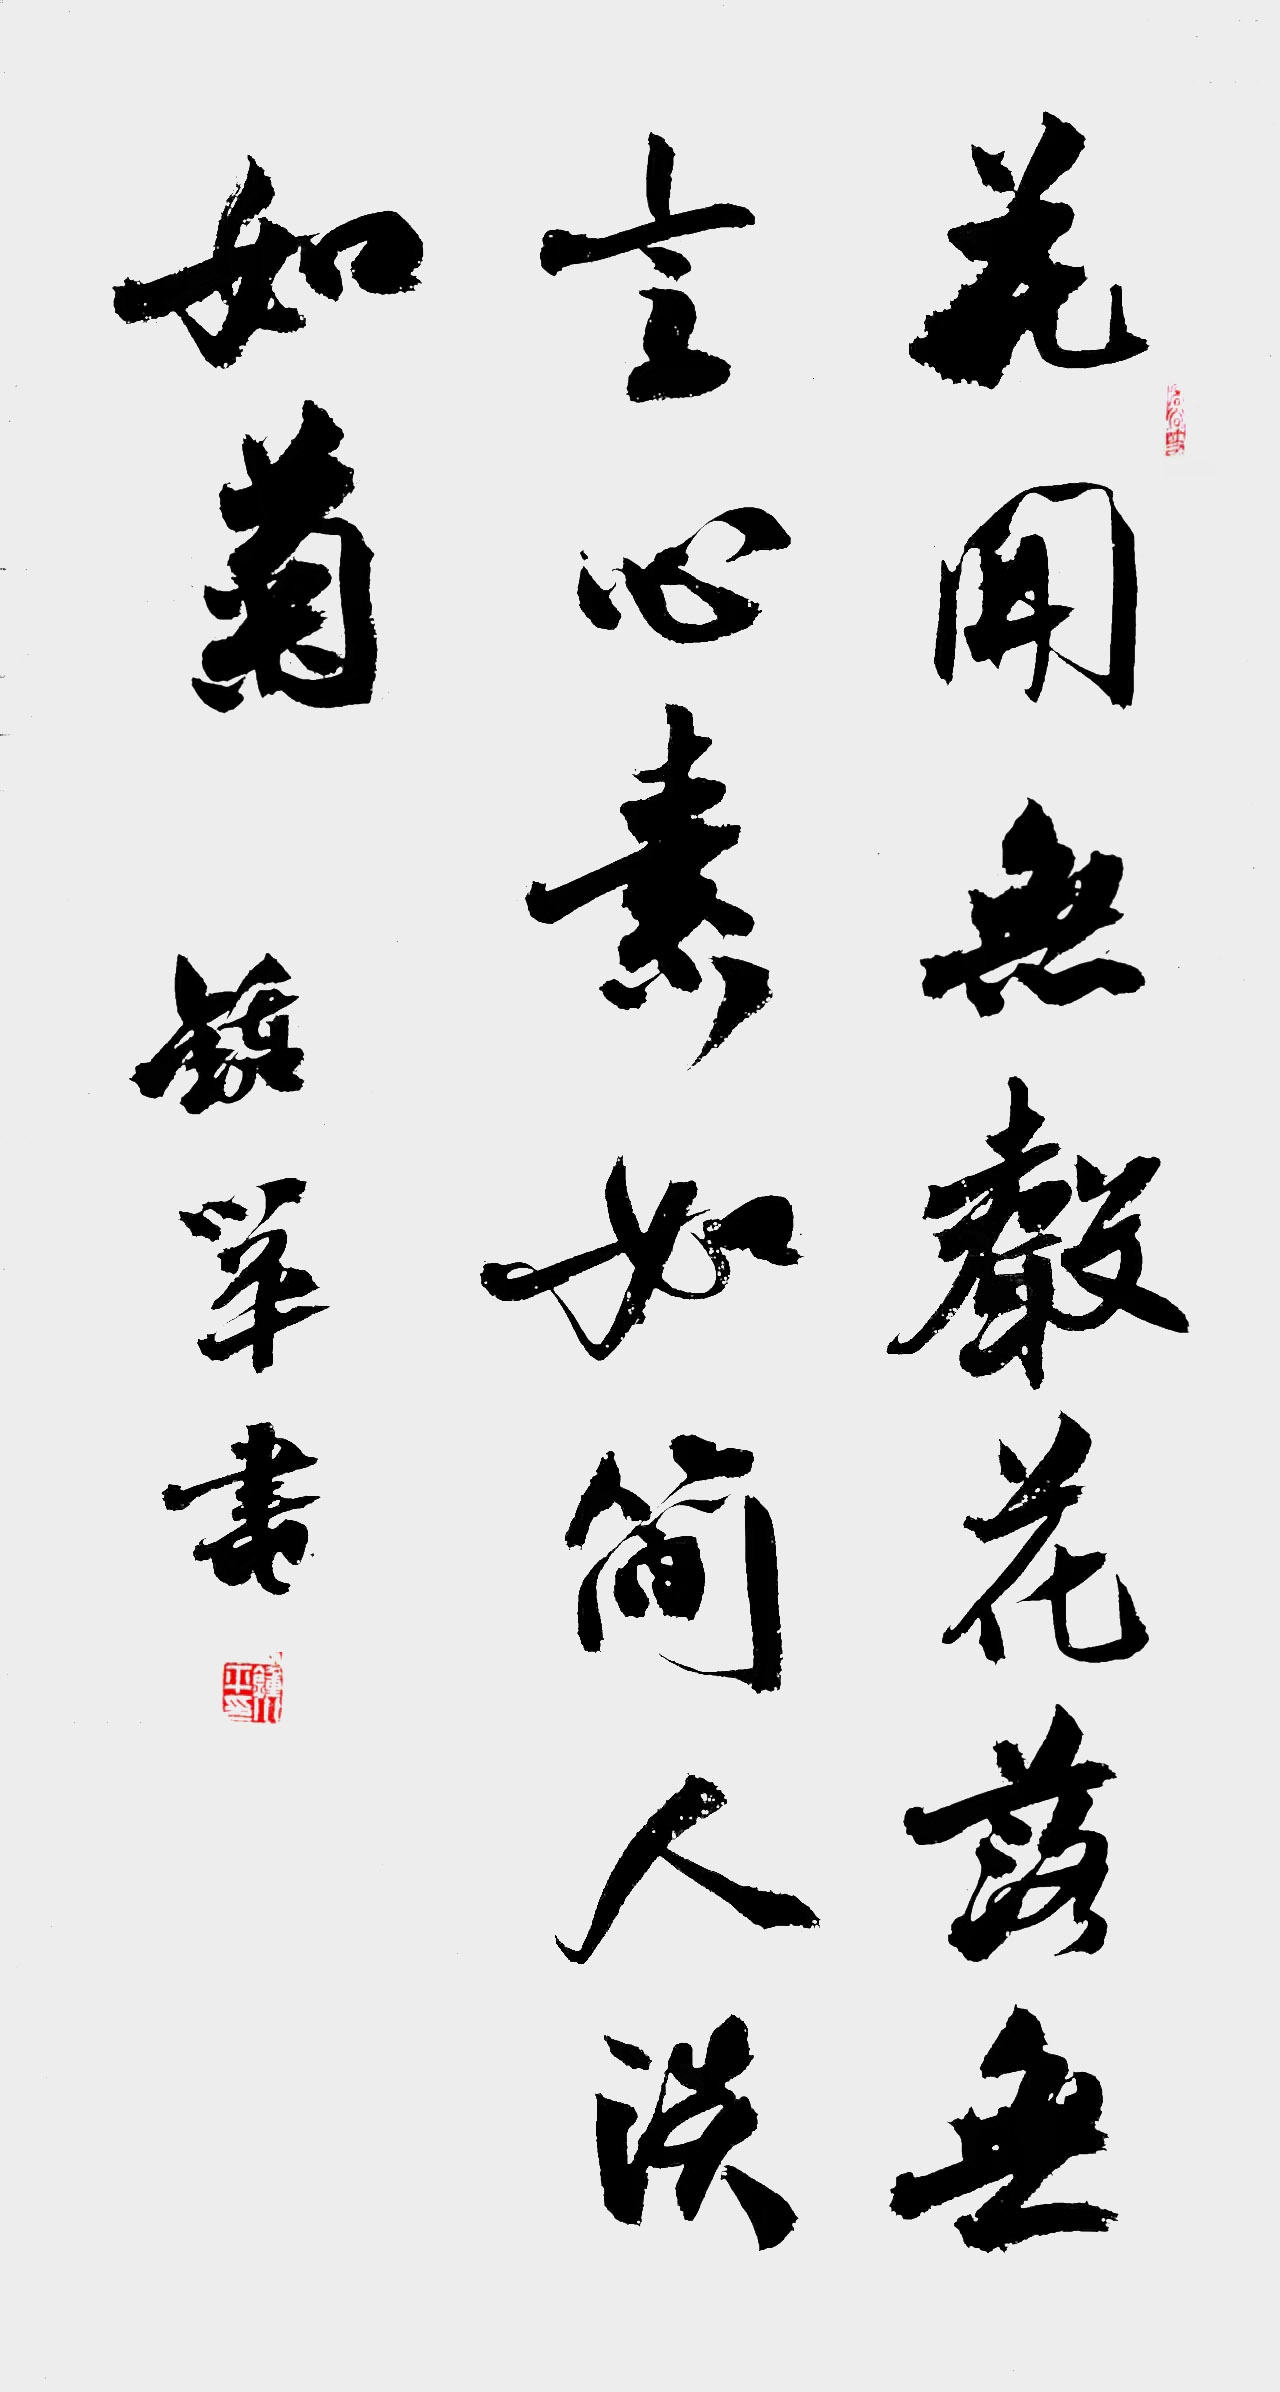 花開無聲花落無
言心素如简人淡
如菊
平書